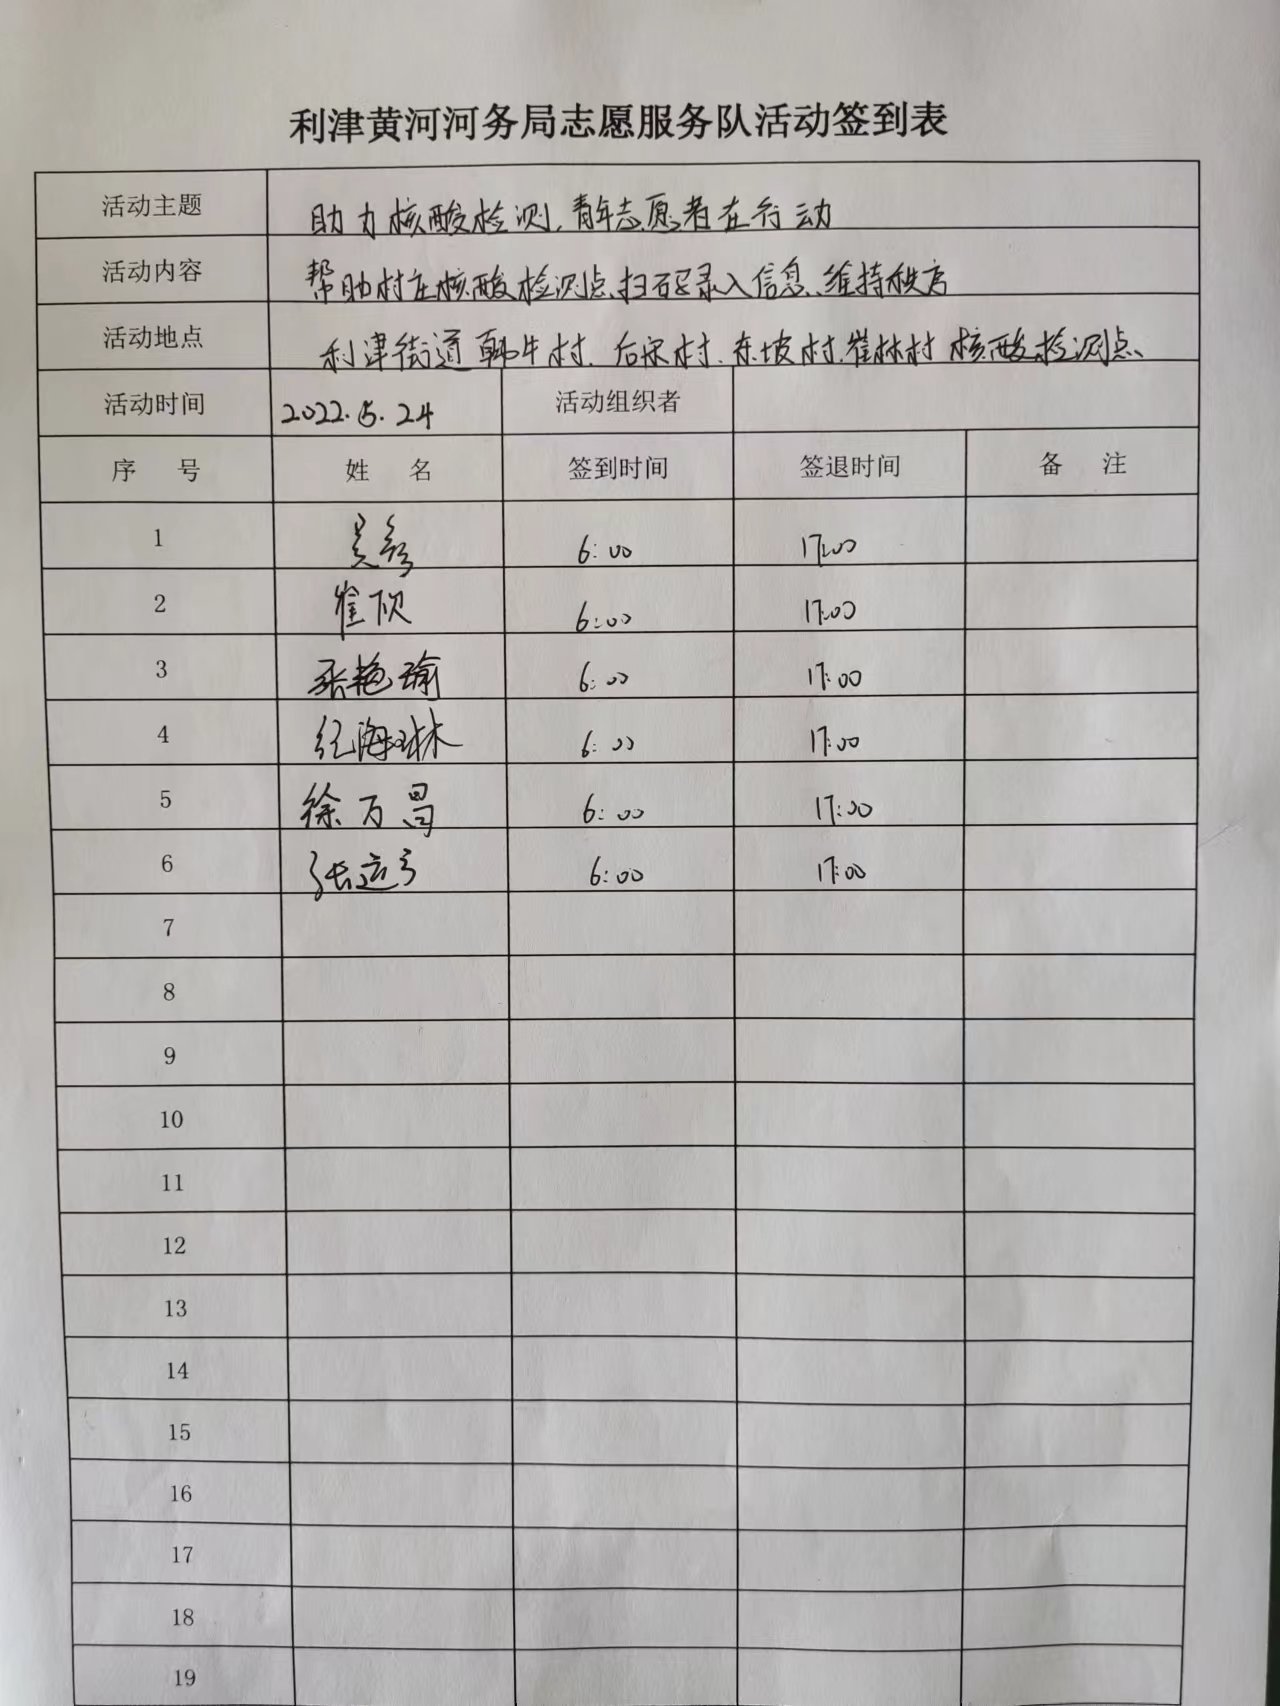 利津黄河河务局志愿服务队活动签到表
活动主题 助力核酸检测,青年志愿者在行动
活动内容 帮助村庄核酸检测点扫码录入信息、维持秩序
活动地点 利津街道韩牛村、后宋村、东坡村、崔林村核酸检测点
活动时间 2022.5.24 活动组织者
序号 姓名 签到时间 签退时间 备注
1 吴 6:00 17:00
2 崔欣 6:00 17:00
3 张艳瑜 6:00 17:00
4 纪海琳 6:00 17:00
5 徐万昌 6:00 17:00
6 张 6:00 17:00
7
8
9
10
11
12
13
14
15
16
17
18
19